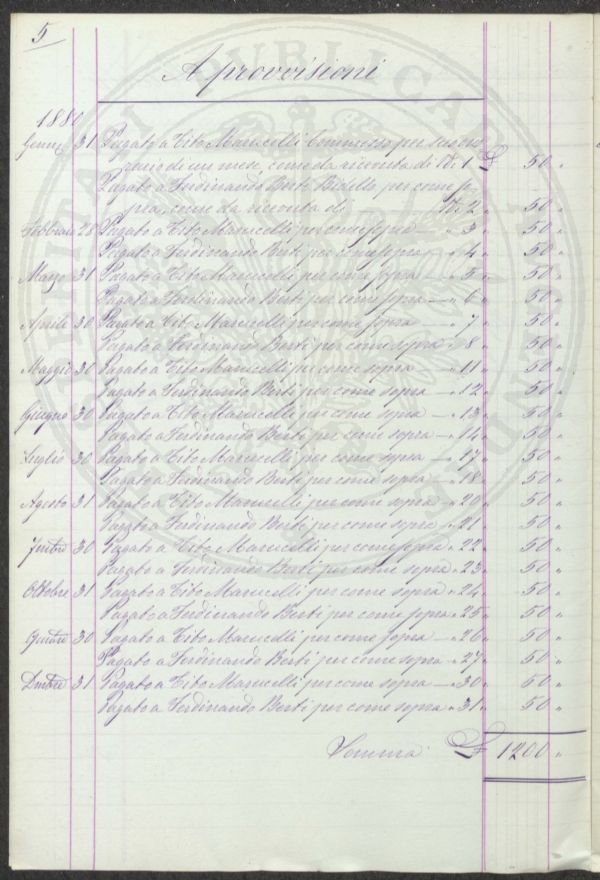 5
A provvisioni
1880
Genn 31 Pagato a Tito Marucelli Commesso per suo
di un mese, come da ricevuta di N. 1 £ 50 "
Pagato a Ferdinando Berti Bidello per come so-
pra, come da ricevuta di N. 2 " 50 "
Febbraio 28 Pagato a Tito Marucelli per come sopra — " 3 " 50 "
Pagato a Ferdinando Berti per come sopra " 4 " 50 "
Marzo 31 Pagato a Tito Marucelli per come sopra — " 5 " 50 "
Pagato a Ferdinando Berti per come sopra — " 6 " 50 "
Aprile 30 Pagato a Tito Marucelli per come sopra — " 7 " 50 "
Pagato a Ferdinando Berti per come sopra " 8 " 50 "
Maggio 30 Pagato a Tito Marucelli per come sopra — " 11 " 50 "
Pagato a Ferdinando Berti per come sopra — " 12 " 50 "
Giugno 30 Pagato a Tito Marucelli per come sopra — " 13 " 50 "
Pagato a Ferdinando Berti per come sopra — " 14 " 50 "
Luglio 30 Pagato a Tito Marucelli per come sopra — " 17 " 50 "
Pagato a Ferdinando Berti per come sopra — " 18 " 50 "
Agosto 31 Pagato a Tito Marucelli per come sopra — " 20 " 50 "
Pagato a Ferdinando Berti per come sopra " 21 " 50 "
7mbre 30 Pagato a Tito Marucelli per come sopra " 22 " 50 "
Pagato a Ferdinando Berti per come sopra " 23 " 50 "
Ottobre 31 Pagato a Tito Marucelli per come sopra — " 24 " 50 "
Pagato a Ferdinando Berti per come sopra " 25 " 50 "
9mbre 30 Pagato a Tito Marucelli per come sopra — " 26 " 50 "
Pagato a Ferdinando Berti per come sopra " 27 " 50 "
Dmbre 31 Pagato a Tito Marucelli per come sopra — " 30 " 50 "
Pagato a Ferdinando Berti per come sopra " 31 " 50 "
Somma £ 1200 "